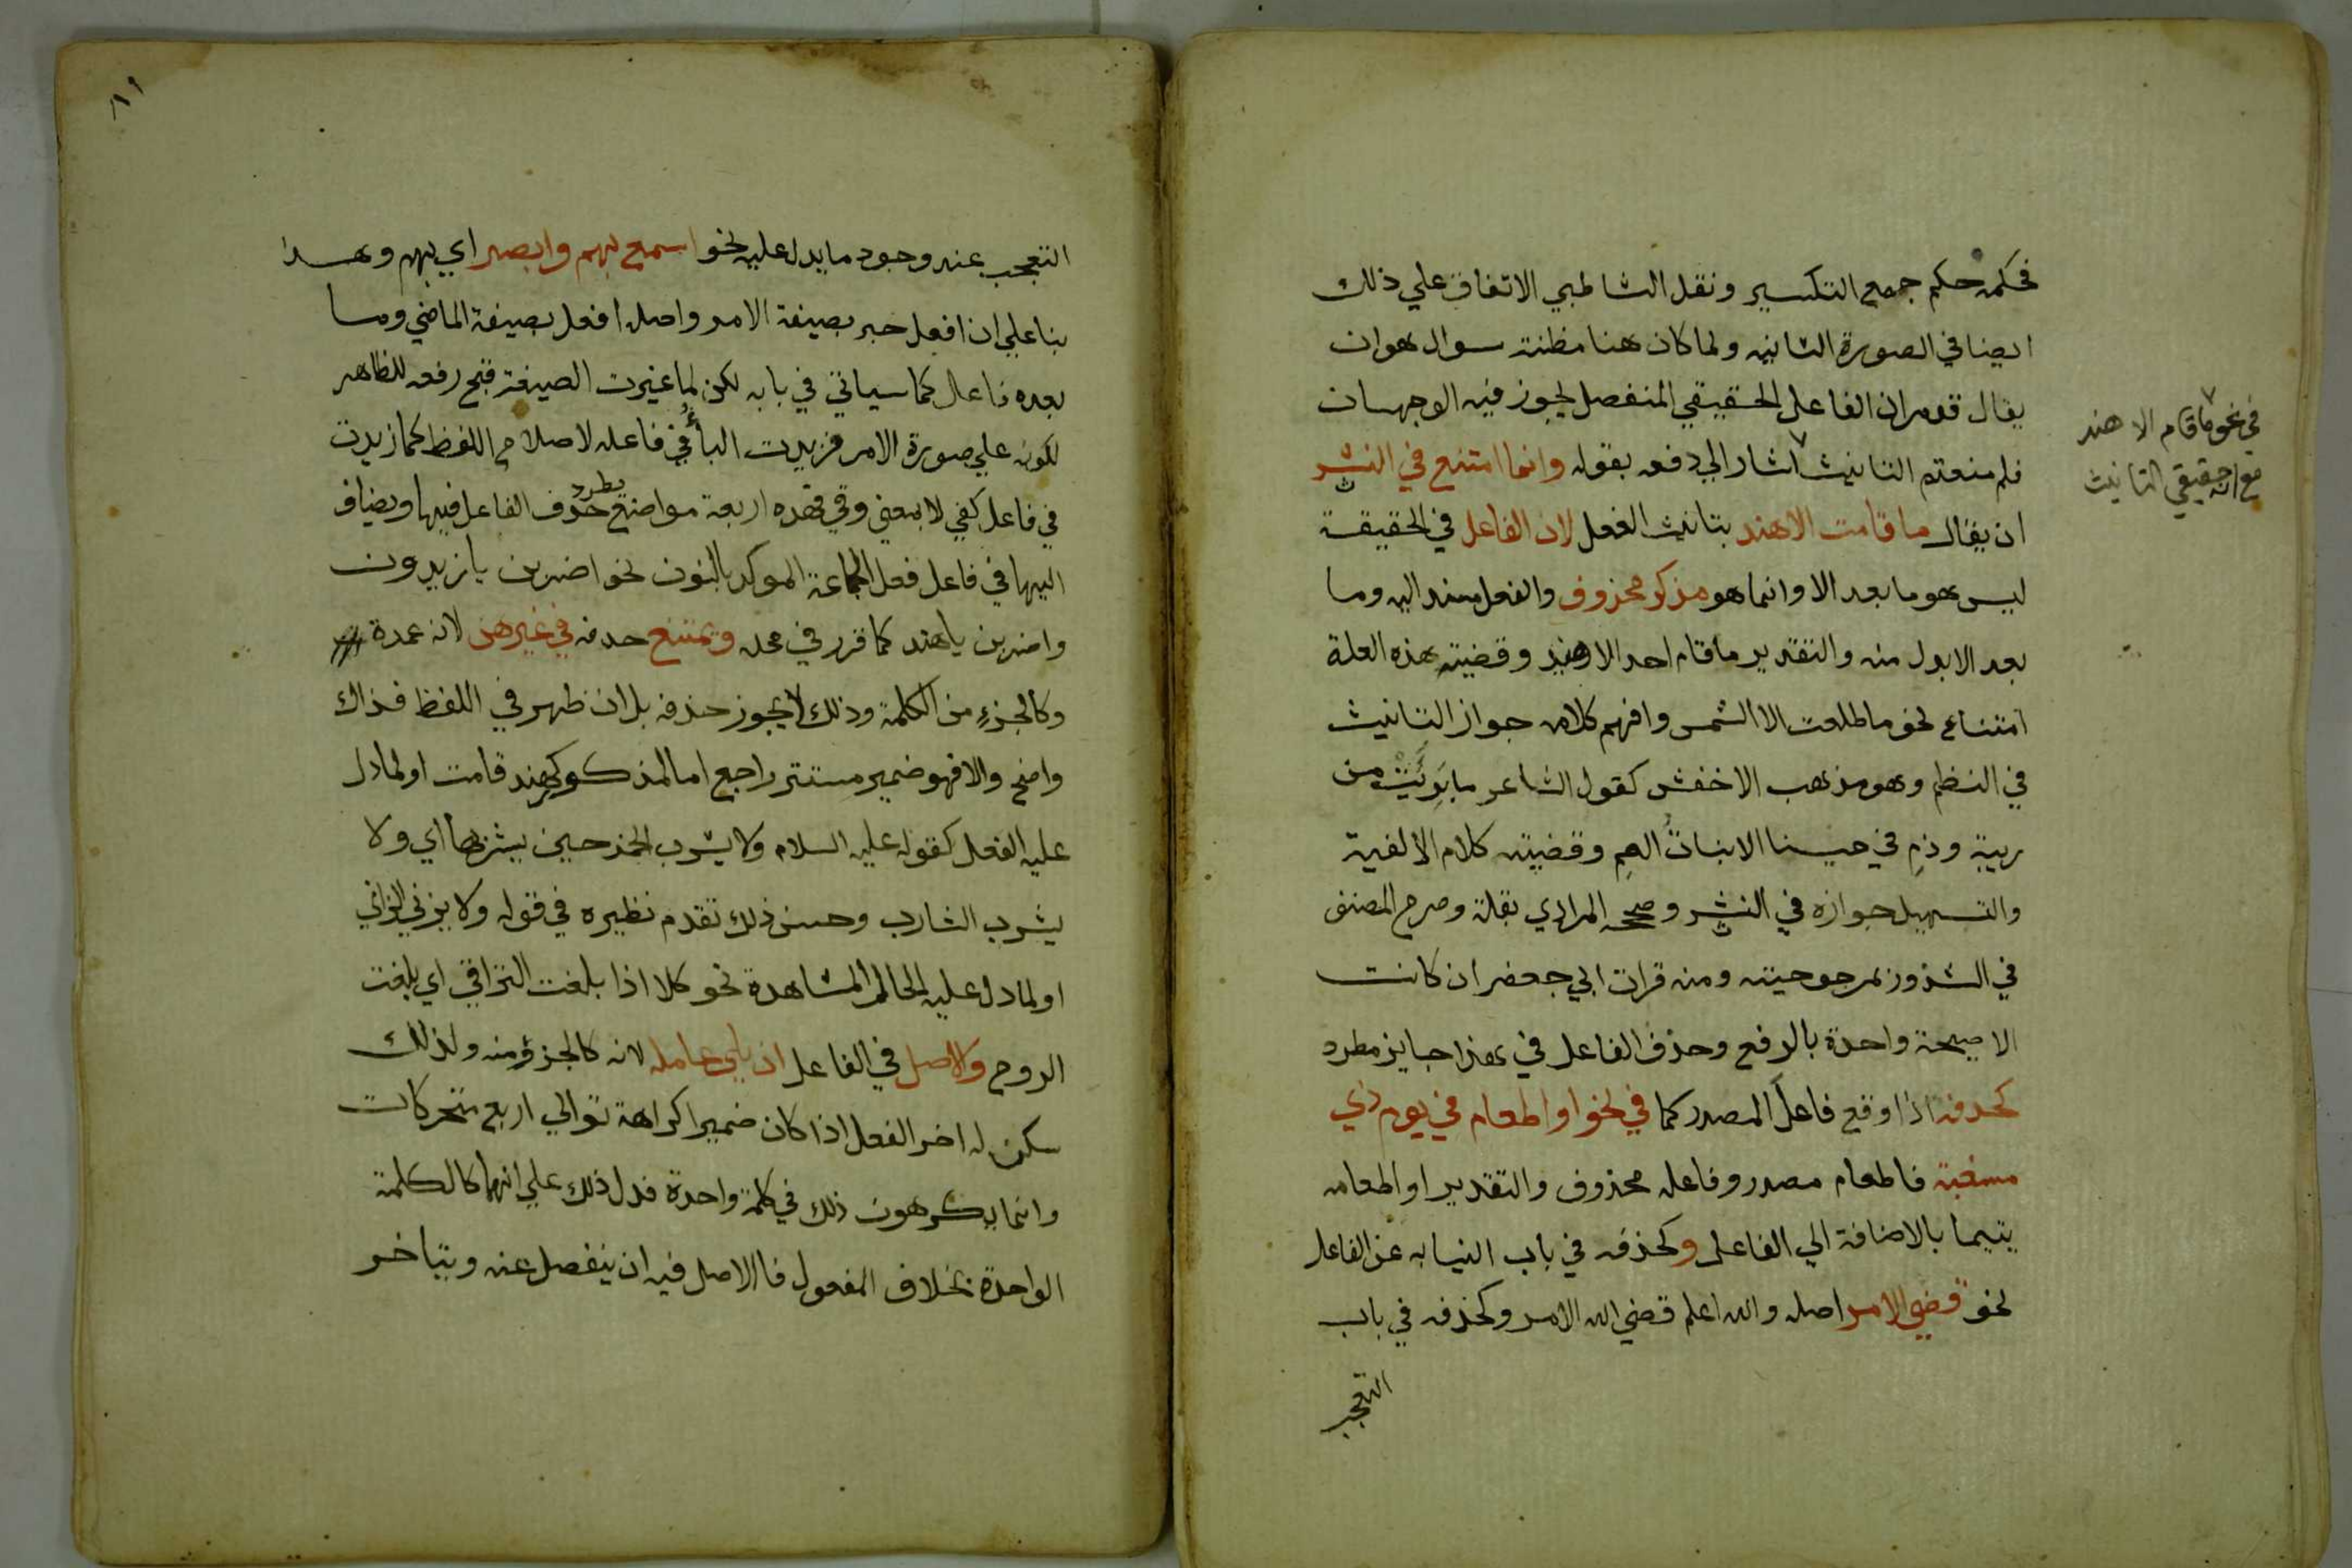 فحكمه حكم جمع التكسير ونقل الشاطبي الاتفاق علي ذلك
ايضا في الصورة الثانيه ولما كان هنا مظنة سوال هوان
يقال قد مران الفاعل الحقيقي المنفصل يجوز فيه الوجهان
فلم منعتم التانيث اشار الي دفعه بقوله وانما امتنع في النثر
ان يقال ما قامت الا هند بتانيث الفعل لان الفاعل في الحقيقة
ليس هو ما بعد الا وانما هو مذكر محذوف والفعل مسند اليه وما
بعد الا بدل منه والتقدير ما قام احد الا هند وقضيته هذه العلة
امتناع نحو ما طلعت الا الشمس وافهم كلامه جواز التانيث
في النظم وهو مذهب الاخفش كقول الشاعر ما بَرِئَتْ من
ريبة وذمِ في حربنا الا بناتُ العمِ وقضية كلام الالفية
والتسهيل جوازه في النثر وصححه المرادي بقلة وصرح المصنف
في الشذور بمرجوحيته ومنه قراة ابي جعفر ان كانت
الا صيحة واحدة بالرفع وحذف الفاعل في هذا جايز مطرد
كحذفه اذا وقع فاعل المصدر كما في نحو او اطعام في يوم ذي
مسغبة فاطعام مصدر وفاعله محذوف والتقدير او اطعامه
يتيما بالاضافة الي الفاعل وكحذفه في باب النيابه عن الفاعل
نحو قضي الامر اصله والله اعلم قضي الله الامر وكحذفه في باب
التعجب
في نحو ما قام الا هند
مع انه حقيقي التانيث
٨٩
التعجب عند وجود ما يدل عليه نحو اسمع بهم وابصر اي بهم وهذا
بنا علي ان افعل خبر بصيغة الامر واصله افعل بصيغة الماضي وما
بعده فاعل كما سياتي في بابه لكن لما غيرت الصيغة قبح رفعه للظاهر
لكونه علي صورة الامر فزيدت البأ في فاعله لاصلاح اللفظ كما زيدت
في فاعل كفي لا بمعني وقي فهذه اربعة مواضع يطرد حذف الفاعل فيها ويضاف
اليها في فاعل فعل الجماعة الموكد بالنون نحو اضربن يا زيدون
واضربن يا هند كما قرر في محله ويمتنع حذفه في غيرهن لانه عمدة
وكالجزءِ من الكلمة وذلك لا يجوز حذفه بل ان ظهر في اللفظ فذاك
واضح والا فهو ضمير مستتر راجع اما لمذكور كهند قامت او لما دل
عليه الفعل كقوله عليه السلام ولا يشرب الخمر حين يشربها اي ولا
يشرب الشارب وحسن ذلك تقدم نظيره في قوله ولا يزني الزاني
او لما دل عليه الحال المشاهدة نحو كلا اذا بلغت التراقي اي بلغت
الروح والاصل في الفاعل ان يلي عامله لانه كالجزؤ منه ولذلك
سكن له اخر الفعل اذا كان ضميرا كراهة توالي اربع متحركات
وانما يكرهون ذلك في كلمة واحدة فدل ذلك علي انهما كالكلمة
الواحدة بخلاف المفعول فاالاصل فيه ان ينفصل عنه ويتاخر